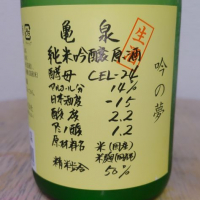 亀泉
生
純米吟醸原酒
吟の夢
酵母 CEL-24
アルコール分 14%
日本酒度 -15
酸度 2.2
アミノ酸 1.2
原材料名 米(国産)
米麹(国産米)
精米歩合 50%